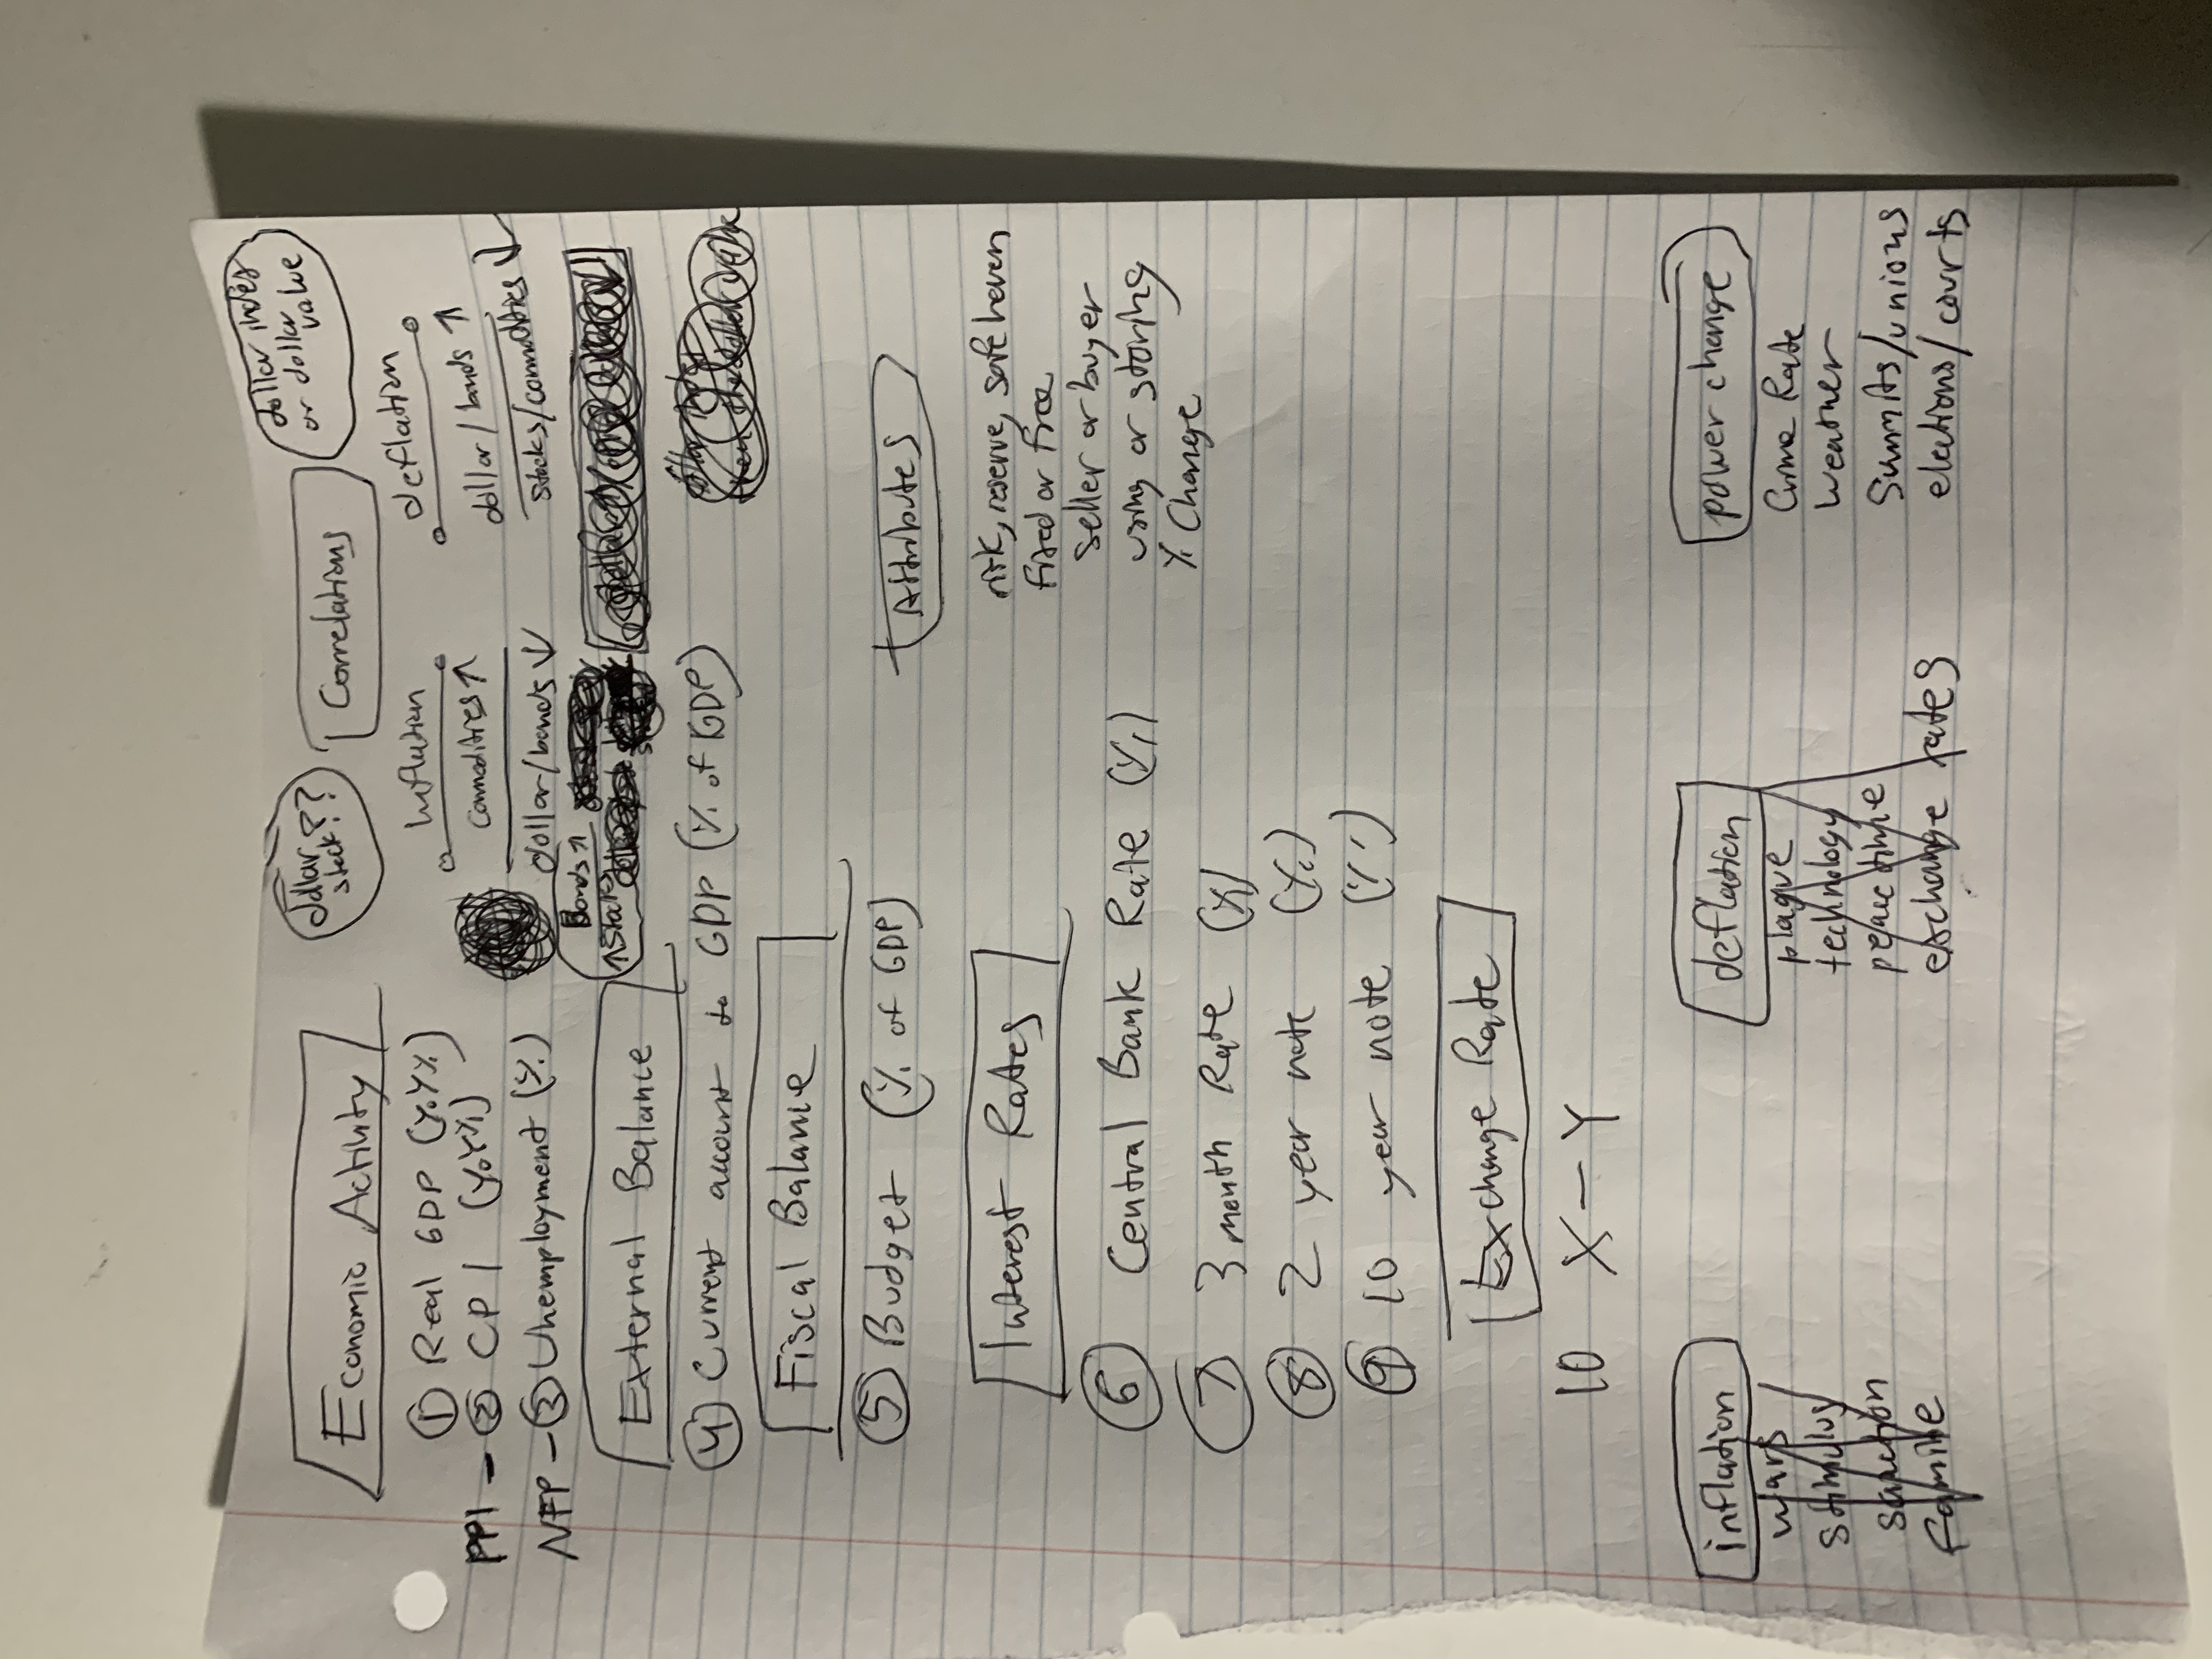 Economic Activity
① Real GDP (YoY%)
PPI - ② CPI (YoY%)
NFP - ③ Unemployment (%)
External Balance
④ Current account to GDP (% of GDP)
Fiscal Balance
⑤ Budget (% of GDP)
Interest Rates
⑥ Central Bank Rate (%)
⑦ 3 month Rate (%)
⑧ 2 year note (%)
⑨ 10 year note (%)
Exchange Rate
10 X - Y
dollar
stock??
Correlations
dollar index
or dollar
value
Inflation
commodities ↑
dollar/bonds ↓
Bonds ↑
↑ Stocks
deflation
dollar/bonds ↑
stocks/commodities ↓
Attributes
risk, reserve, safe haven
fixed or free
seller or buyer
using or storing
% Change
inflation
wars
stimulus
sanction
famine
deflation
plague
technology
peace time
exchange rates
power change
Crime Rate
weather
Summits/unions
elections/courts